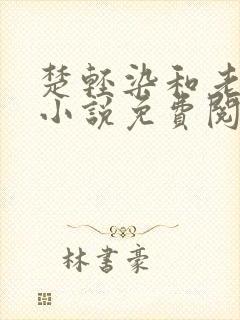 楚轻染和老
小說免費閱
林書豪